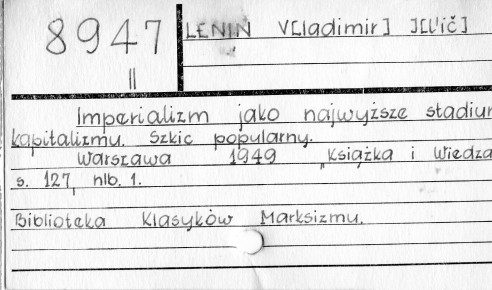 8947
II
LENIN V[ladimir] I[l'ič]
Imperializm jako najwyższe stadium
kapitalizmu. Szkic popularny.
Warszawa 1949 „Książka i Wiedza
s. 127, nlb. 1.
Biblioteka Klasyków Marksizmu.